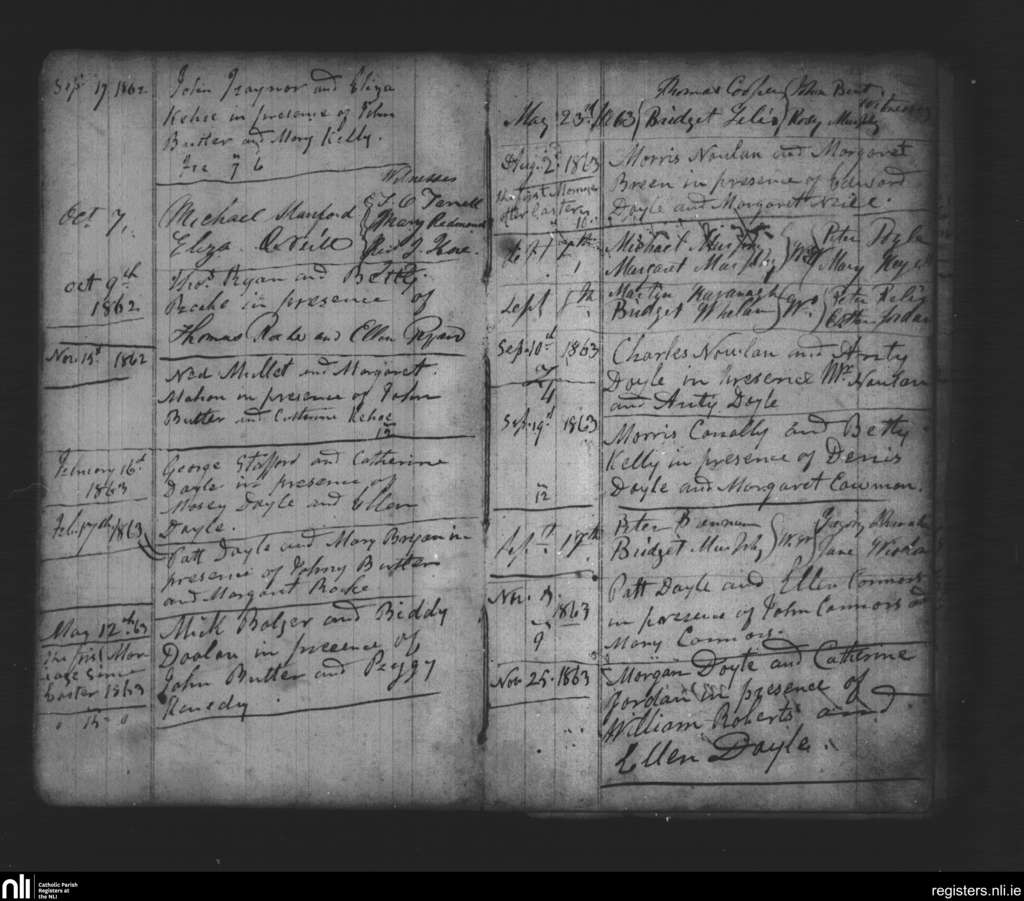 Sep 17 1862 John Traynor and Eliza
Kehoe in presence of John
Butler and Mary Kelly.
7 6
Witnesses
Oct 7, Michael Manford
Mary Redmond
Eliza
oct 9th Thos Ryan and Betty
1862 Roche in presence of
Thomas Roche and Ellen Ryan
Nov. 15t 1862
Ned Mullet and Morgaret
Mahon in presence of John
Butler and Catherine Kehoe
12
February 16t George Stafford and Catherine
1863 Doyle in presence of
Mosey Doyle and Ellen
Feb. 17th 1863 Doyle.
Patt Doyle and Mary Bryan in
presence of Johny Butler
and Margaret Roche
May 12th 63 Mick Bolger and Biddy
The first Mar
Doolan in presence of
riage Since
John Butler and Peggy
Easter 1863
Kenedy
15
Thomas John
witnesses
May 23rd 1863 Bridget Rody Murphy
Aug. 2d 1863 Morris Nowlan and Morgaret
the first
Breen in presence of Edward
after Easter
Doyle and Margaret Neill.
Michael Murphy Peter Doyle
Margaret Murphy Mary
Sept Martin Kavanagh Peter
Bridget Whelan Esther Jordan
Sep. 10th 1863 Charles Nowlan and Anty
Doyle in presence Mr Nowlan
4 and Anty Doyle
Sep. 19t 1863 Morris Conally and Betty
Kelly in presence of Denis
12 Doyle and Morgaret Cowman.
Sept 17th Peter
Bridget Murphy Jane
Nov. 9. Patt Doyle and Ellen Connors
1863 in presence of John Connors and
9 Mary Connors.
Nov 25. 1863 Morgan Doyle and Catherine
Jordan in presence of
William Roberts and
Ellen Doyle.
nli Catholic Parish
Registers at
the NLI
registers.nli.ie